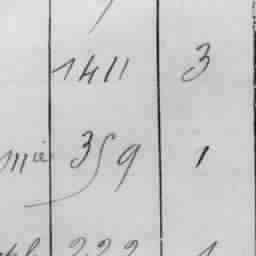 1411 3
mie 359 1
222 1